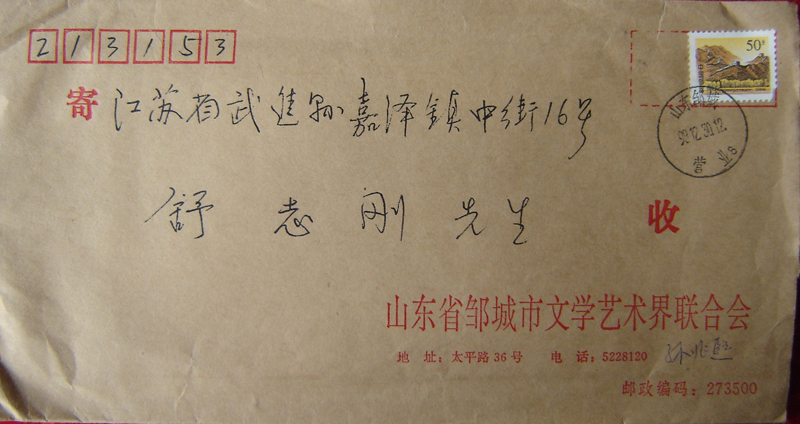 213153
50分
寄 江苏省武进县嘉泽镇中街16号
山东邹城
舒志刚先生 收
山东省邹城市文学艺术界联合会
地 址：太平路36号 电 话：5228120
邮政编码：273500